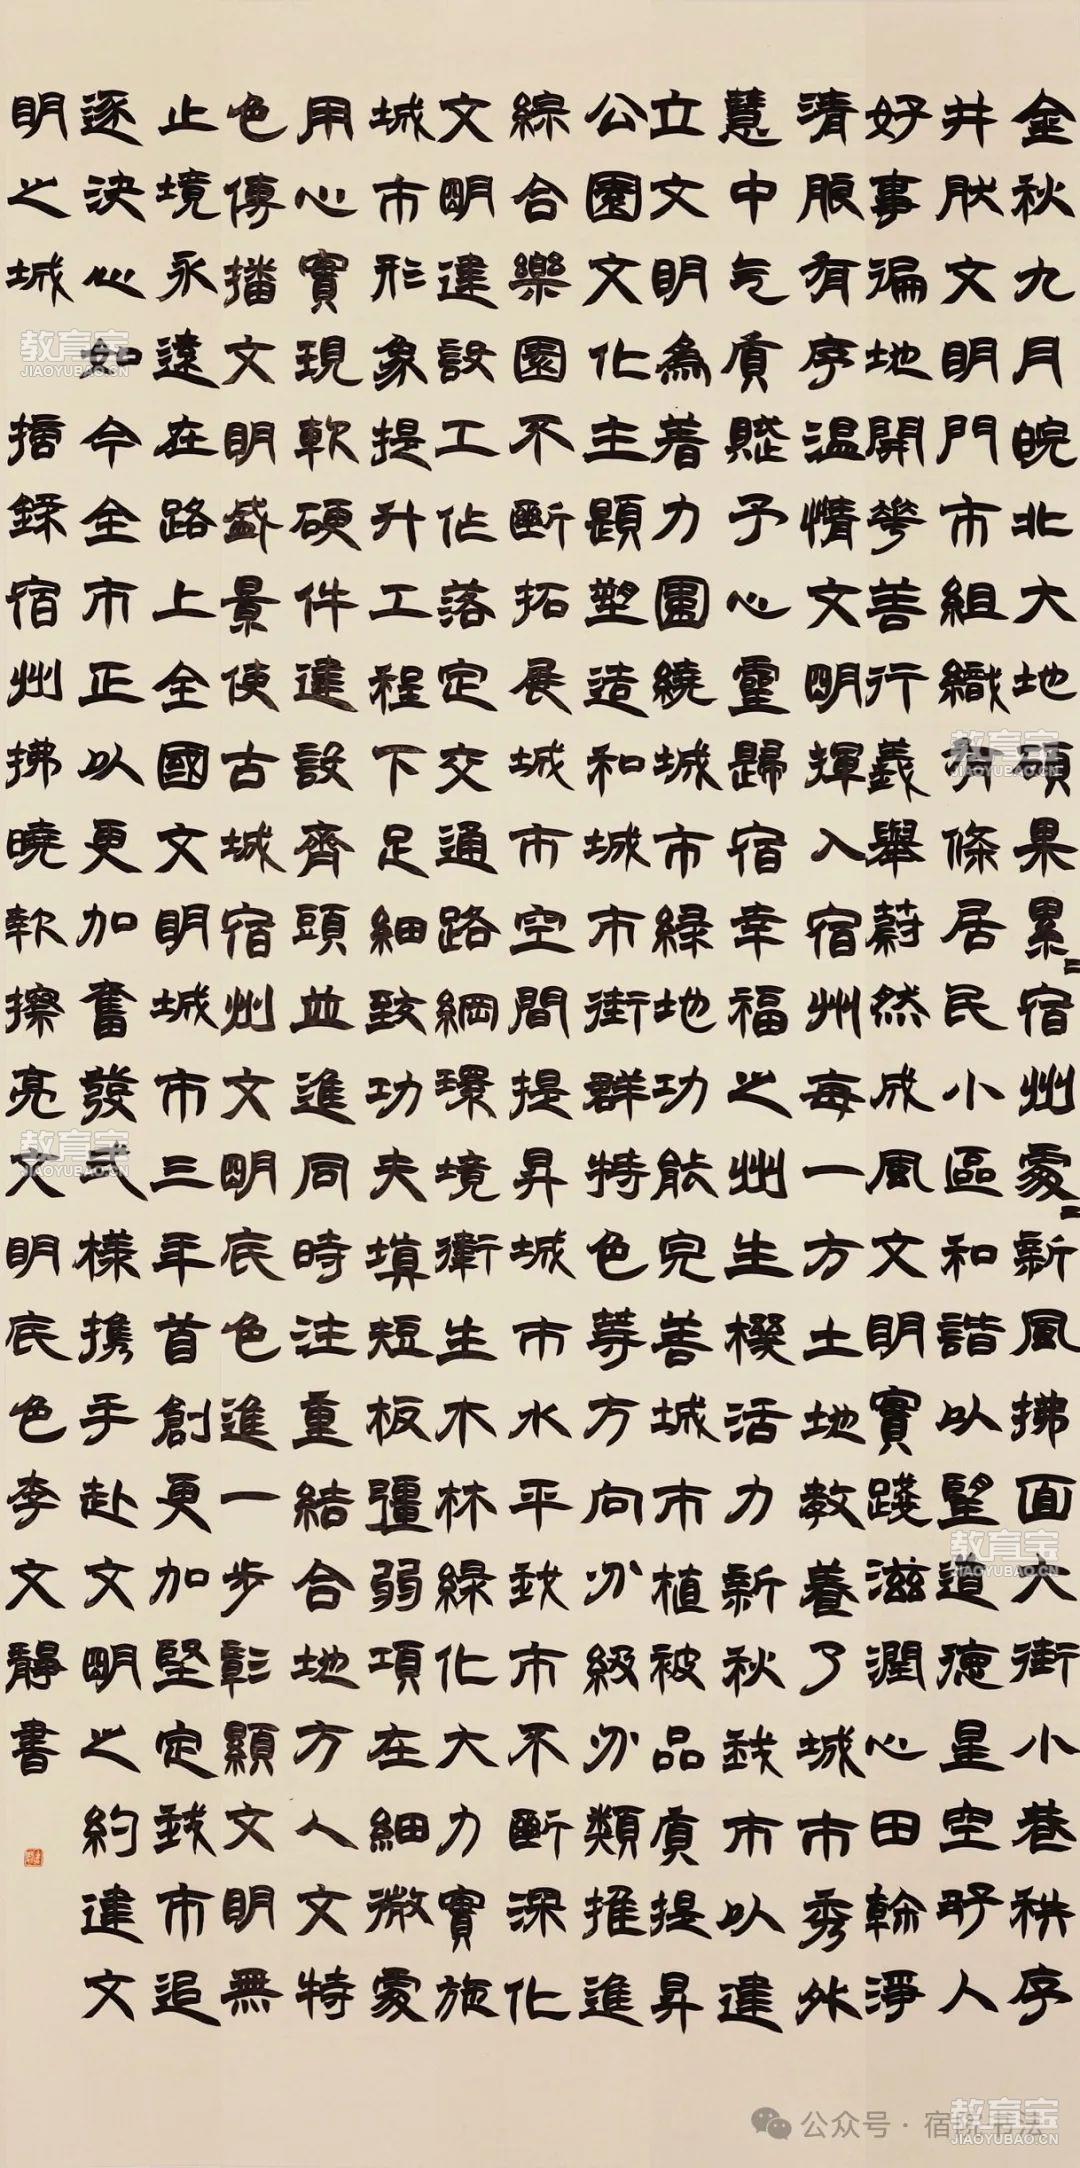 金秋九月皖北大地碩果累=宿州處=新風拂面大街小巷秩序
井肰文明門市組織有條居民小區和諧以望道德星空好人
好事徧地開花善行義舉蔚然成風文明實踐滋潤心田翰淨
清朖有序温情文明揮入宿州每一方土地教養了城市秀外
慧中气質予心靈歸宿幸福之州生機活力新秋我市以建
立文明為着力圍繞城市緑地功能完善城市植被品質提昇
公園文化主題塑造和城市街群特色等方向分級分類推進
綜合樂園不斷拓展城市空間提昇城市水平我市不斷深化
文明建設工作落定交通路網環境衛生木林緑化大力實施
城市形象提升工程下足細致功夫填短板彊弱項在細微處
用心實現軟硬件建設齊頭並進同時注重結合地方人文特
色傳播文明盛景使古城宿州文明底色進一步彰顯文明無
止境永遠在路上全國文明城市三年首創更加堅定我市追
逐決心如今全市正以更加奮發弍樣携手赴文明之約建文
明之城宿州拂曉軟擦亮文明底色李文靜書
教育宝
JIAOYUBAO.CN
教育宝
JIAOYUBAO.CN
教育宝
JIAOYUBAO.CN
教育宝
JIAOYUBAO.CN
公众号·宿悦书法
教育宝
JIAOYUBAO.CN